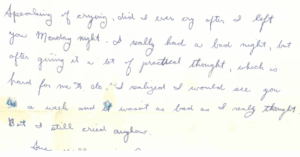 Speaking of crying, did I ever cry after I left
you Monday night. I really had a bad night, but
after giving it a lot of practical thought, which is
hard for me to do, I realized I would see you
in a week and it wasn't as bad as I really thought.
But I still cried anyhow.
Love,